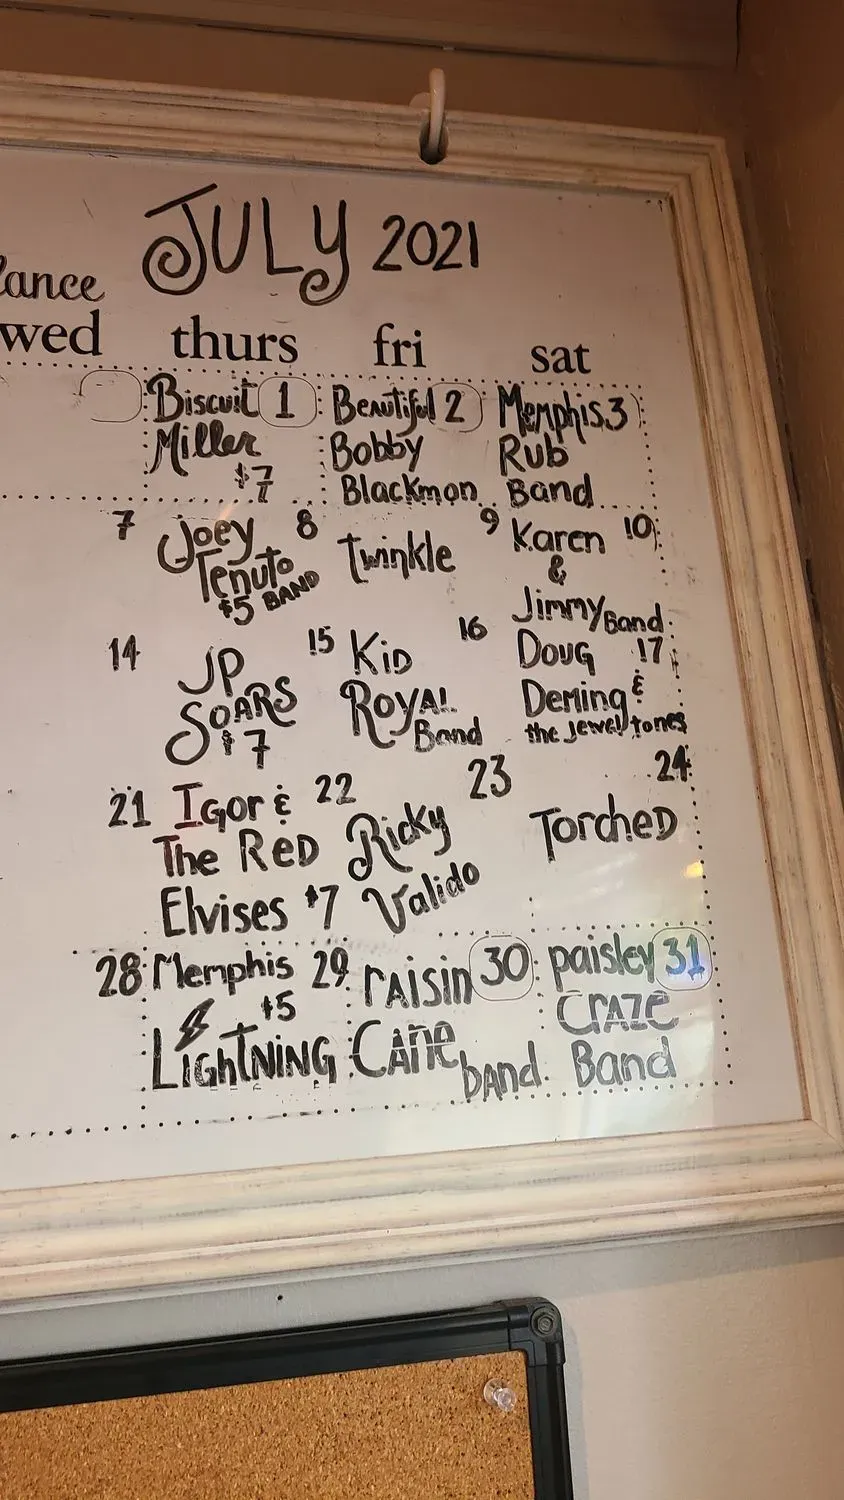 JULY 2021
lance
wed thurs fri sat
Biscuit 1 Beautiful 2 Memphis 3
Miller Bobby Rub
$7 Blackmon Band
7 Joey 8 Twinkle 9 Karen 10
Tenuto &
$5 BAND Jimmy Band
14 JP 15 KiD 16 DOUG 17
SOARS ROYAL Deming &
$7 Band the Jewel tones
21 IGOR & 22 23 24
The RED Ricky TorcheD
Elvises $7 Valido
28 Memphis 29 rAisin 30 paisley 31
$5 CRAZE
LIGHTNING CANe bAnd Band